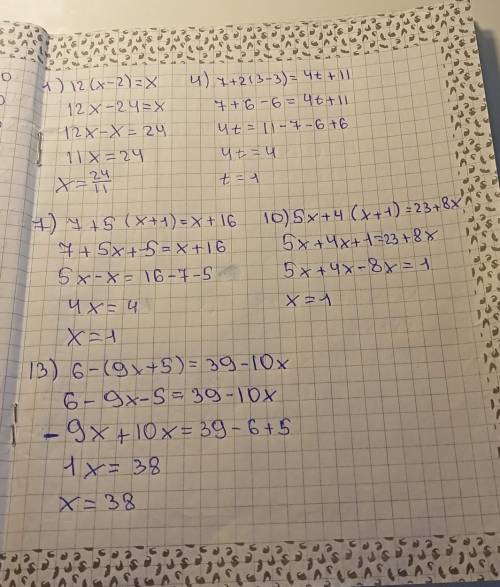 1) 12(x-2)=x
12x-24=x
12x-x=24
11x=24
x=24/11
4) 7+2(3-3)=4t+11
7+6-6=4t+11
4t=11-7-6+6
4t=4
t=1
7) 7+5(x+1)=x+16
7+5x+5=x+16
5x-x=16-7-5
4x=4
x=1
10) 5x+4(x+1)=23+8x
5x+4x+1=23+8x
5x+4x-8x=1
x=1
13) 6-(9x+5)=39-10x
6-9x-5=39-10x
-9x+10x=39-6+5
1x=38
x=38